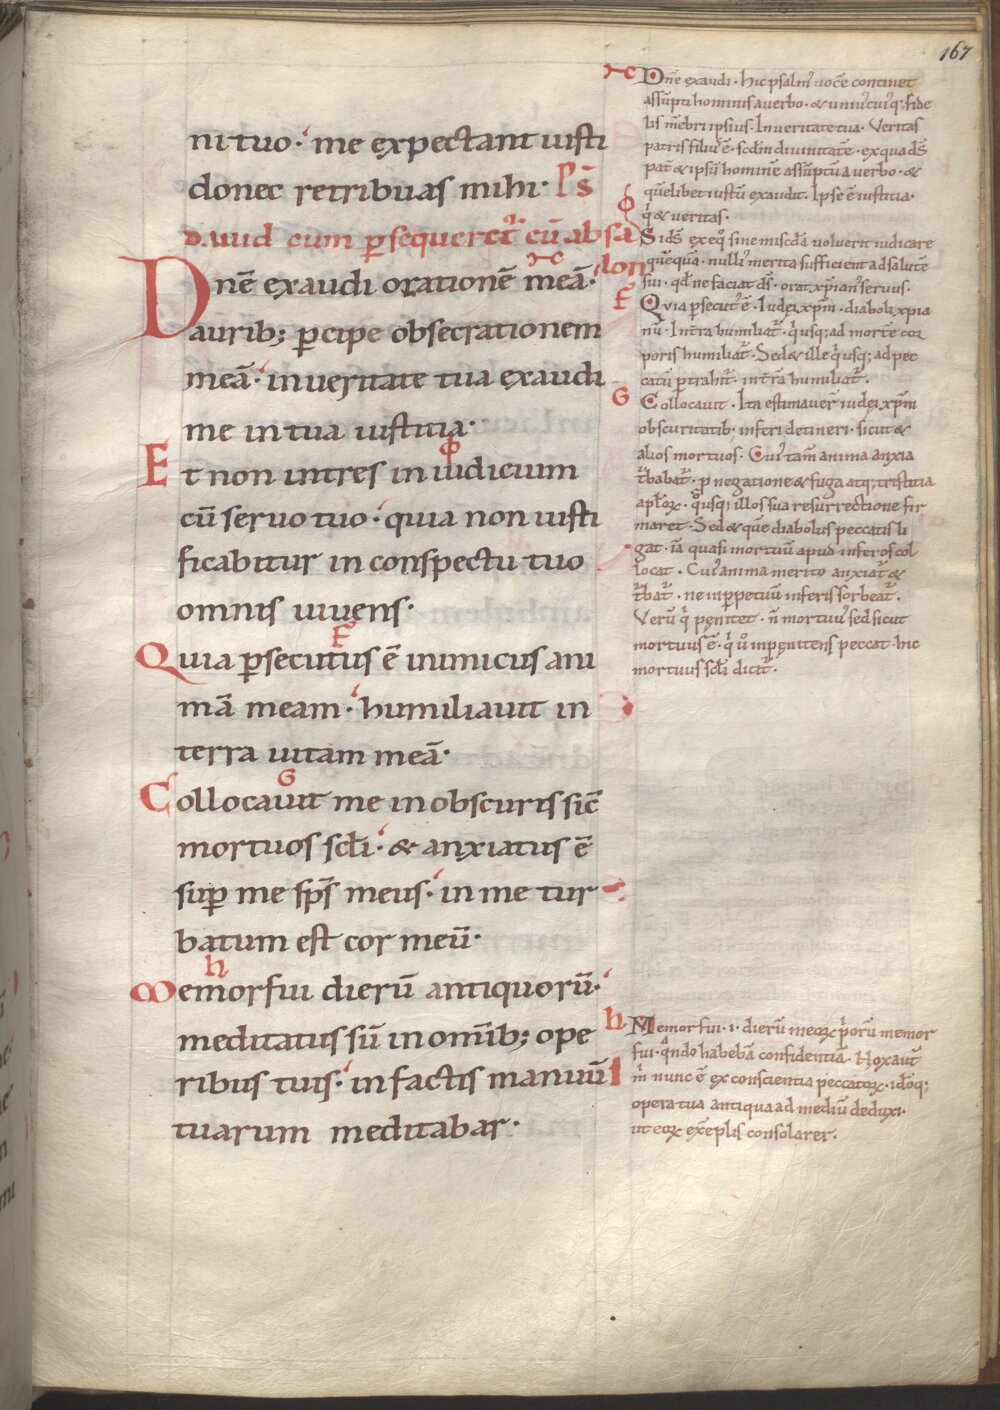 167
ni tuo· me expectant iusti
donec retribuas mihi· Ps̄
dauid cum p̱sequeret᷑ cū absa
lon
Dnē exaudi orationē meā·
aurib; p̱cipe obsecrationem
meā· in ueritate tua exaudi
me in tua iustitia·
Et non intres in iudicium
cū seruo tuo· quia non iusti
ficabitur in conspectu tuo
omnis uiuens·
Quia p̱secutus ē inimicus ani
mā meam· humiliauit in
terra uitam meā·
Collocauit me in obscuris sic̄
mortuos scl̄i· & anxiatus ē
sup̱ me sp̄s meus· in me tur
batum est cor meū·
Memor fui dierū antiquorū·
meditatus sū in omīb; ope
ribus tuis· in factis manuū
tuarum meditabar·
Dnē exaudi· hic psalm᷒ uocē continet
assūpti hominis a uerbo· & uniu᷒cui᷒q; fide
lis mēbri ipsius· In ueritate tua· Veritas
patris filiu᷒ ē· scdm̄ diuinitatē· ex qua ds̄
pat̄ & ipsū hominē assūptū a uerbo· &
quēlibet iustū exaudit· Ipse ē iustitia·
q̇ & ueritas·
Si ds̄ ex eq̊ sine miscd̄a uoluerit iudicare
quēquā· nulli᷒ merita sufficient ad salutē
sui· qd̄ ne faciat ds̄· orat xp̄ian᷒ seruus·
Quia p̱secut᷒ ē· Iudęi xp̄m· diaboli xpia
nū· In tr̄a humiliat᷑ q̇usq; ad mortē cor
poris humiliat᷑· Sed & ille q̇usq; ad pec
catū p̱trahit᷑· in tr̄a humiliat᷑·
Collocauit· Ita estimauer̄ iudęi xp̄m
obscuritatib; inferi detineri· sicut &
alios mortuos· Cui᷒ tam̄ anima anxia
t̄babat᷑· p̱ negatione & fuga atq; tristitia
apl̄oꝝ· q̊usq; illos sua resurrectione fir
maret· Sed & quē diabolus peccatis li
gat· iā quasi mortuū apud inferos col
locat· Cui᷒ anima merito anxiat᷑ &
t̄bat᷑· ne in p̱petuū inferis sorbeat᷑·
Verū q̇ pęnitet· n̄ mortuu᷒ sed sicut
mortuus ē· q̇ ů inpęnitens peccat· hic
mortuus scl̄i dicit᷑·
Memor fui· i· dierū meoꝝ ṗorū memor
fui· qͣndo habebā confidentiā· Noxa aut̄
m̄ nunc ē ex conscientia peccatoꝝ· id̊q;
opera tua antiqua ad mediū deduxi·
ut eoꝝ exēplis consolarer·